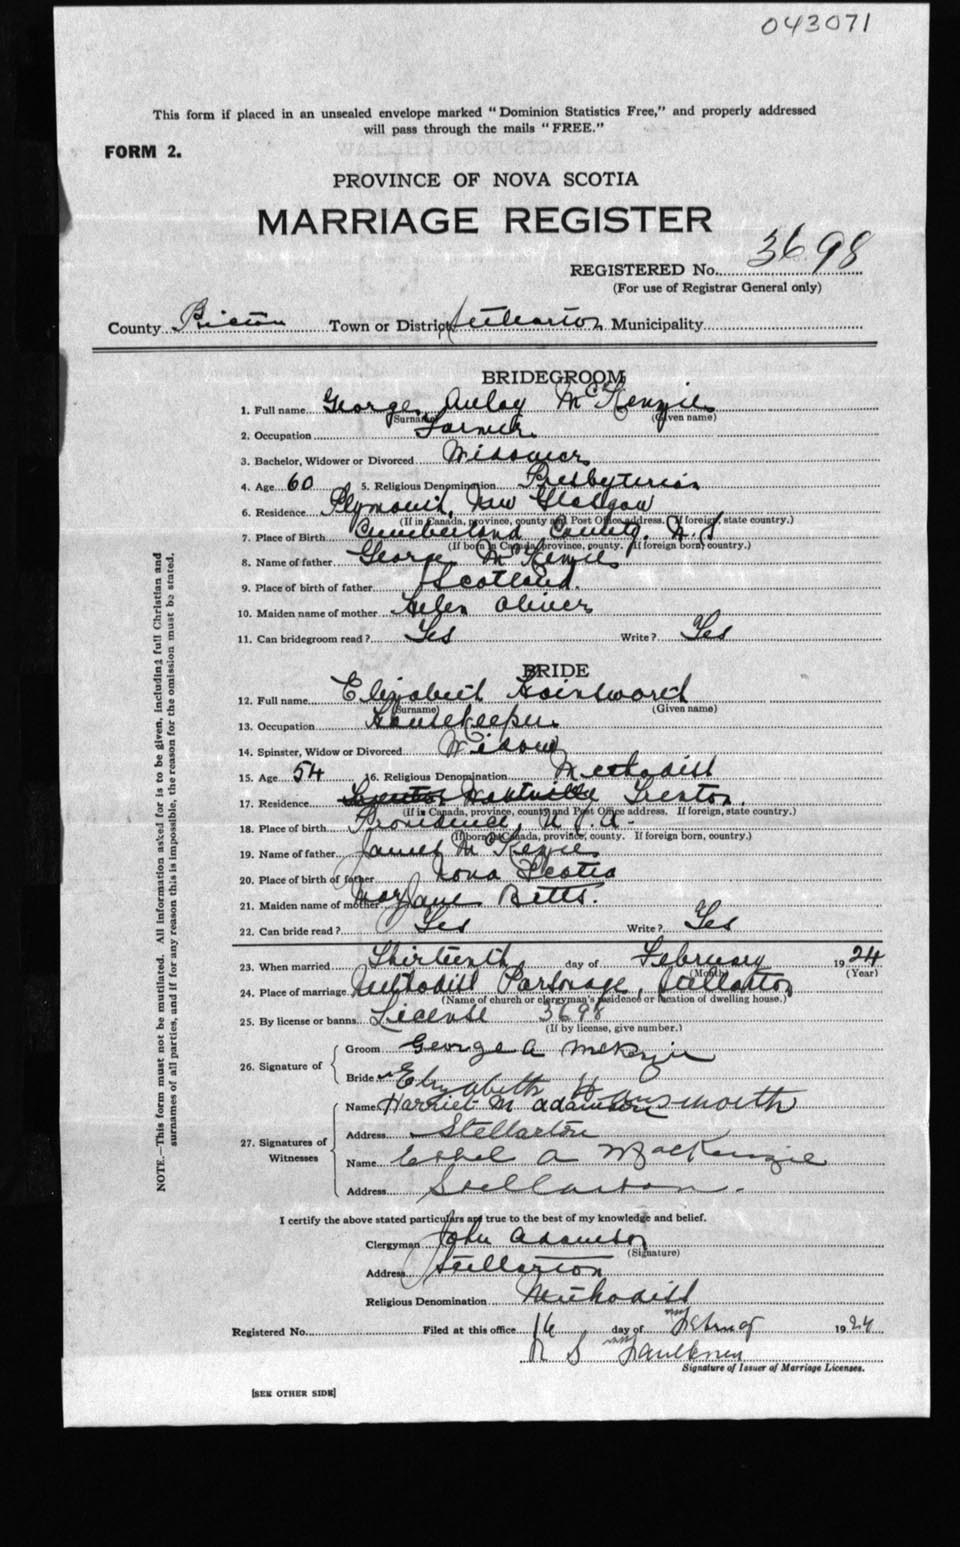 043071
This form if placed in an unsealed envelope marked "Dominion Statistics Free," and properly addressed
will pass through the mails "FREE."
FORM 2.
PROVINCE OF NOVA SCOTIA
MARRIAGE REGISTER
REGISTERED No. 3698
(For use of Registrar General only)
County Pictou Town or District Stellarton Municipality
BRIDEGROOM
1. Full name George Aulay McKenzie
(Surname) (Given name)
2. Occupation Farmer
3. Bachelor, Widower or Divorced Widower
4. Age 60 5. Religious Denomination Presbyterian
6. Residence Plymouth, New Glasgow
(If in Canada, province, county and Post Office address. If foreign, state country.)
7. Place of Birth Cumberland County, N.S
(If born in Canada, province, county. If foreign born, country.)
8. Name of father George McKenzie
9. Place of birth of father Scotland.
10. Maiden name of mother Helen Oliver
11. Can bridegroom read? Yes Write? Yes
BRIDE
12. Full name Elizabeth Hainsworth
(Surname) (Given name)
13. Occupation Housekeeper
14. Spinster, Widow or Divorced Widow
15. Age 54 16. Religious Denomination Methodist
17. Residence Trenton.
(If in Canada, province, county and Post Office address. If foreign, state country.)
18. Place of birth Providence, U.S.A.
(If born in Canada, province, county. If foreign born, country.)
19. Name of father James McKenzie
20. Place of birth of father Nova Scotia
21. Maiden name of mother Mary Jane Betts.
22. Can bride read? Yes Write? Yes
23. When married Thirteenth day of February 1924
(Month) (Year)
24. Place of marriage Methodist Parsonage, Stellarton
(Name of church or clergyman's residence or location of dwelling house.)
25. By license or banns License 3698
(If by license, give number.)
26. Signature of
Groom George A McKenzie
Bride Elizabeth Hainsworth
27. Signatures of Witnesses
Name Harriet M Adamson
Address Stellarton
Name Ethel A MacKenzie
Address Stellarton.
I certify the above stated particulars are true to the best of my knowledge and belief.
Clergyman John Adamson
(Signature)
Address Stellarton
Religious Denomination Methodist
Registered No. Filed at this office 16 day of 1924
S Faulkner
Signature of Issuer of Marriage Licenses.
[SEE OTHER SIDE]
NOTE.—This form must not be mutilated. All information asked for is to be given, including full Christian and
surnames of all parties, and if for any reason this is impossible, the reason for the omission must be stated.